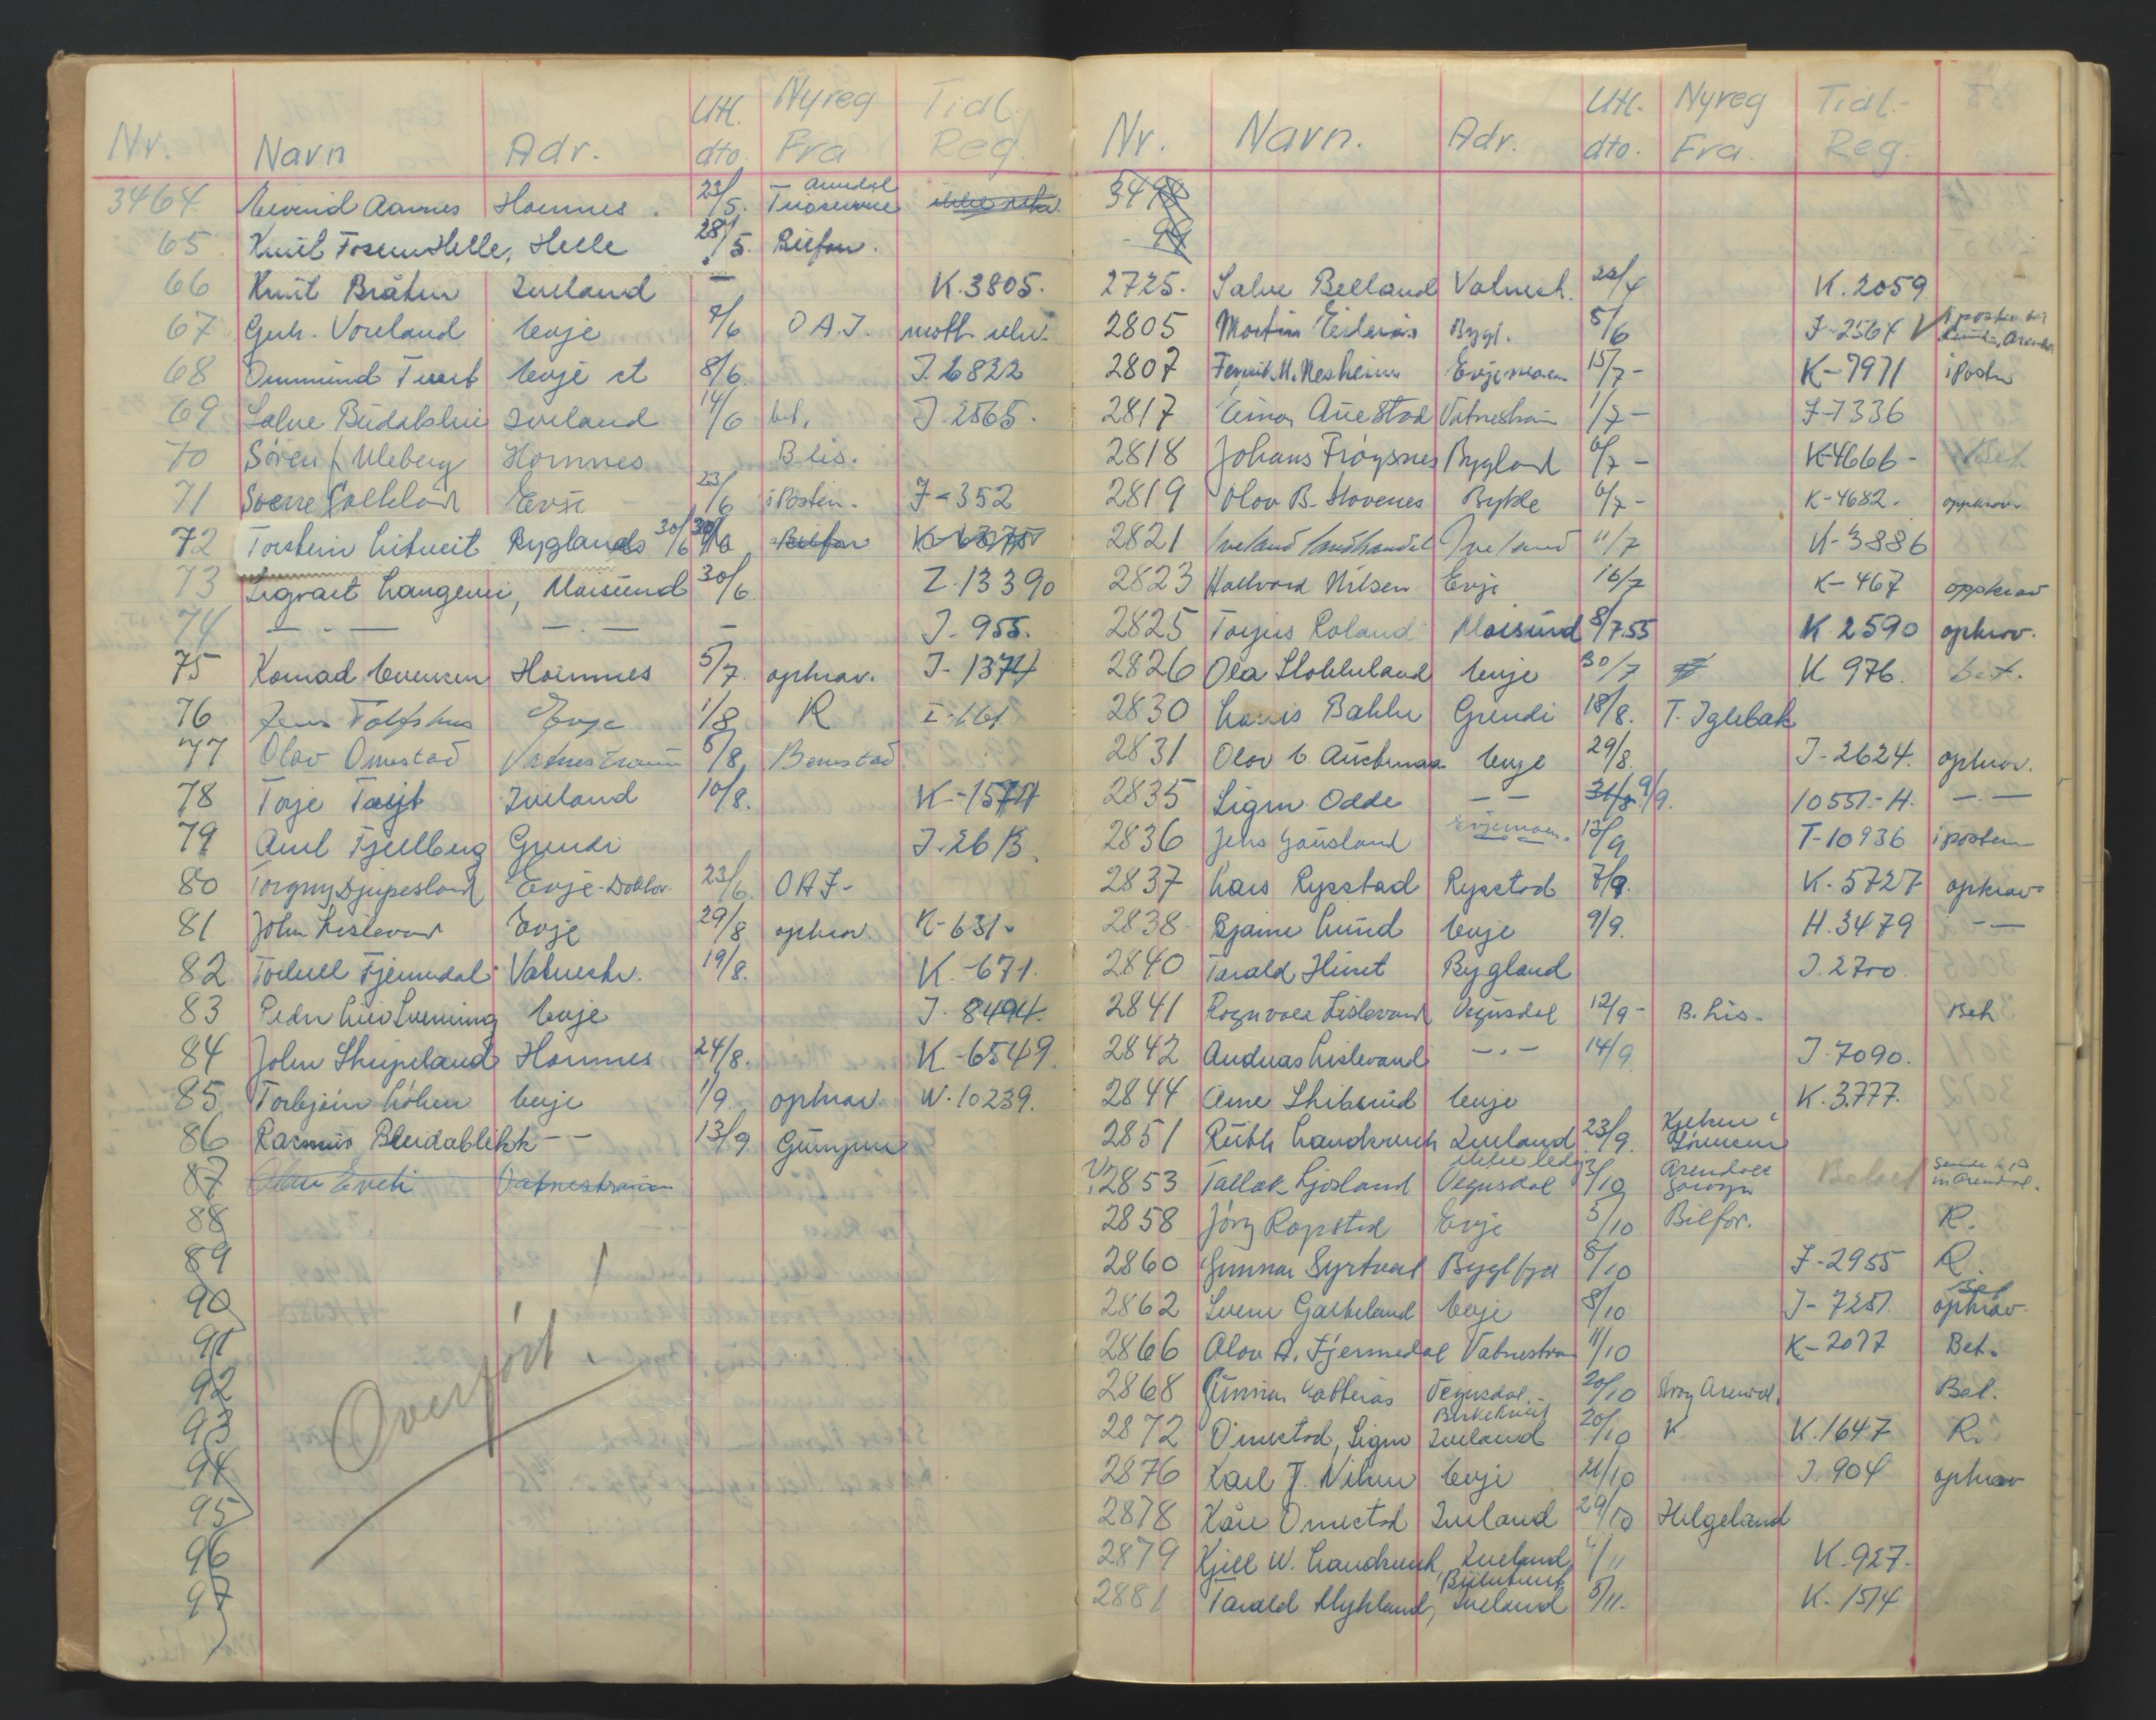 Nr. Navn Adr. Utl. dto. Nyreg Fra Tidl. Reg.
3464 Eivind Aavnes Hornnes. 23/5. Arendal
65 Knut Helle, Helle 28/5. Bilfor.
66 Knut Bråten Iveland — K.3805.
67 Gunh. Voreland Evje 7/6 O A J.
68 Ommund Tveit Evje st 8/6. J.6822
69 Salve Birkeland Iveland 14/6 J.2565.
70 Søren Uleberg Hornnes B lis.
71 Sverre Galteland Evje 23/6 i Posten. J-352
72 Torstein Litveit Byglands 30/6 30/6 Bilfor K-13075
73 Sigvart Langemi, Moisund 30/6 Z-13390
74 — . — — . — — J. 955.
75 Konrad Evensen Hornnes 5/7. opkrav. J-1374
76 Jens Tolfshus Evje 1/8 R I-161
77 Olav Omestad Vatnestraum 8/8, Bemestad
78 Torje Tveit Iveland 10/8. K-1574
79 Aml Fjellberg Grendi J.26 B.
80 Torgny Djupesland Evje-Doktor 23/6. O A J-
81 John Lislevand Evje 29/8 opkrav. K-631.
82 Torleif Fjermedal Vatnestr. 19/8. K.-671.
83 Peder Evje J. 8494.
84 John Skripeland Hornnes 24/8. K-6549.
85 Torbjørn Løken Evje 1/9. opkrav W.10239.
86 Rasmus Bleidablikk — — 13/9
87 Olav Eveli Vatnestraum
88
89
90
91
92
93
94
95
96
97
Overført!
Nr. Navn. Adr. Utl. dto. Nyreg Fra. Tidl.- Reg.
3498
- 99
2725. Salve Beiland Vatnestr. 22/4 K.2059
2805 Martin Bygl. 5/6 J-2564 Arendal
2807 Fenrik N. Nesheim Evjemoen 15/7- K-7971 i Posten
2817 Einar Austad Vatnestraum 1/7- J-7336
2818 Johans Frøysnes Bygland 6/7- K-4666- Bet
2819 Olav B. Hovenes Bykle 6/7- K-4682. oppkrav.
2821 Iveland landhandel Iveland 11/7 K-3886
2823 Hallvard Nilsen Evje 16/7 K-467 oppkrav
2825 Torjus Roland Moisund 8/7.55 K 2590 opkrav.
2826 Ola Skokkeland Evje 30/7 K 976. bet.
2830 Louis Bakke Grendi 18/8. T. Iglebæk
2831 Olav E. Austenaa Evje 29/8. J-2624. opkrav.
2835 Sigm. Odde — — 31/8 9/9. 10551-H. — . —
2836 Jens Gausland Evjemoen. 13/9 T-10936 i posten
2837 Lars Rysstad Rysstad 7/9. K.5727 opkrav
2838 Bjarne Lund Evje 9/9. H.3479 — —
2840 Tarald Hirst Bygland J.2700.
2841 Rognvald Lislevand Vegusdal 12/9- B. Lis- Bet
2842 Andreas Lislevand — . — 14/9 J.7090.
2844 Arne Skibsrud Evje K.3777.
2851 Ruth Landsverk Iveland 23/9. Kjetun Sørensen
2853 Tallak Ljosland Vegusdal 3/10 Arendal Betalt
2858 Jørg Ropstad Evje 5/10 Bilfor. R.
2860 Gunnar Syrtveit Byglfjd 8/10 J-2955 R
2862 Sven Galteland Evje 8/10 J-7251. opkrav. Bet
2866 Olav A. Fjermedal Vatnestrau 11/10 K-2077 Bet.
2868 Gunnar Vegusdal. 20/10 Arendal. Bet.
2872 Omestad, Sigm Birketveit Iveland 20/10 K K.1647 R.
2876 Karl J. Nilsen Evje 21/10 J.904 opkrav
2878 Kåre Omestad Iveland 29/10 Helgeland
2879 Kjell W. Landsverk, Iveland 4/11 K.927.
2881 Tarald Mykland, Birketveit Iveland 5/11. K.1514